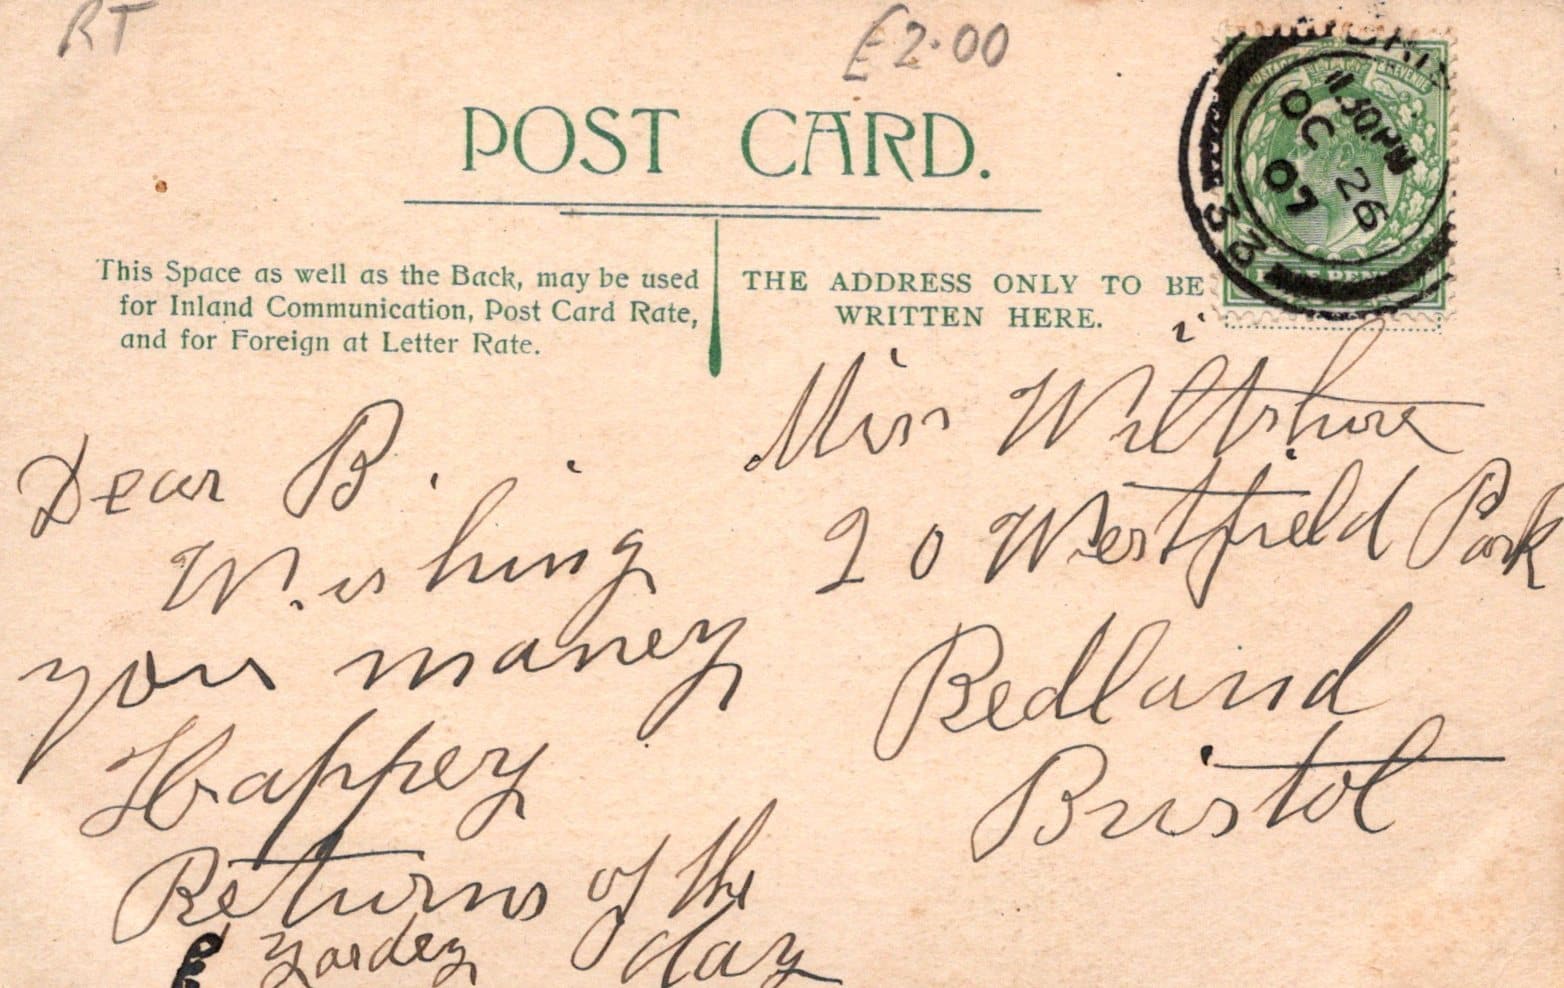 RT
£2.00
POST CARD.
This Space as well as the Back, may be used
for Inland Communication, Post Card Rate,
and for Foreign at Letter Rate.
THE ADDRESS ONLY TO BE
WRITTEN HERE.
POSTAGE & REVENUE
11.30PM
OC 26
07
32
Dear B.
Wishing
you maney
Happey
Returns of the
day
Miss Wiltshire
20 Westfield Park
Redland
Bristol